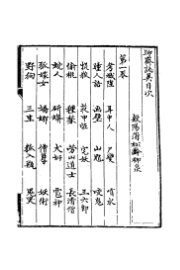 聊齋誌異目次
般陽蒲松齡柳泉
第一卷
考城隍 耳中人 尸變 噴水
瞳人語 畫壁 山魈 咬鬼
捉狐 荍中怪 宅妖 王六郎
偷桃 種梨 勞山道士 長清僧
蛇人 斫蟒 犬奸 雹神
狐嫁女 嬌娜 僧孽 妖術
野狗 三生 狐入瓶 鬼哭